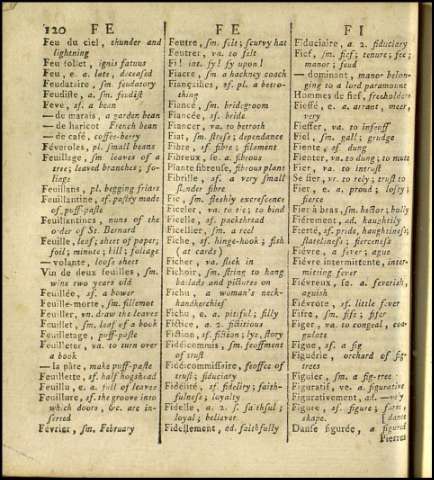 120 F E F E F I
Feu du ciel, thunder and
lightning
Feu follet, ignis fatuus
Feu, e. a. late, deceased
Feudataire, sm. feudatory
Feudiste, a. sm. feudist
Feve, sf. a bean
— de marais, a garden bean
— de haricot French bean
— de café, coffee-berry
Féveroles, pl. small beans
Feuillage, sm leaves of a
tree; leaved branches; fo-
liage
Feuillans, pl. begging friars
Feuillantine, sf. pastry made
of puff-paste
Feuillantines, nuns of the
order of St. Bernard
Feuille, leaf; sheet of paper;
foil; minute; bill; foliage
— volante, loose sheet
Vin de deux feuilles, sm.
wine two years old
Feuillée, sf. a bower
Feuille-morte, sm. fillemot
Feuiller, va. draw the leaves
Feuillet, sm. leaf of a book
Feuilletage, puff-paste
Feuilleter, va. to turn over
a book
— la pâte, make puff-paste
Feuillette, sf. half hogshead
Feuillu, e. a. full of leaves
Feuillure, sf. the groove into
which doors, &c. are in-
serted
Février, sm. February
Feutre, sm. felt; scurvy hat
Feutrer, va. to felt
Fi! int. fy! fy upon!
Fiacre, sm a hackney coach
Fiançailles, sf. pl. a betro-
thing
Fiancé, sm. bridegroom
Fiancée, sf. bride
Fiancer, va. to betroth
Fiat, sm. trust; dependance
Fibre, sf. fibre; filament
Fibreux, se. a. fibrous
Plante fibreuse, fibrous plant
Fibrille, sf. a very small
slender fibre
Fic, sm. fleshly excrescence
Ficeler, va. to tie; to bind
Ficelle, sf. packthread
Ficellier, sm. a reel
Fiche, sf. hinge-hook; fish
(at cards)
Ficher, va. stick in
Fichoir, sm. string to hang
ballads and pictures on
Fichu, a woman's neck-
handkerchief
Fichu, e. a. pitiful; silly
Fictice, a. 2. fictitious
Fiction, sf. fiction; lye, story
Fidéicommis, sm. feoffment
of trust
Fidéicommissaire, feoffee of
trust; fiduciary
Fidélité, sf. fidelity; faith-
fulness; loyalty
Fidelle, a. 2. s. faithful;
loyal; believer
Fidellement, ad. faithfully
Fiduciaire, a. 2. fiduciary
Fief, sm. fief; tenure; fee;
manor; feud
— dominant, manor belong-
ing to a lord paramount
Hommes de fief, freeholders
Fieffé, e. a. arrant, meer,
very
Fieffer, va. to infeoff
Fiel, sm. gall; grudge
Fiente, sf. dung
Fienter, va. to dung; to mute
Fier, va. to intrust
Se fier, vr. to rely; trust to
Fier, e. a. proud; lofty;
fierce
Fier à bras, sm. hector; bully
Fiérement, ad. haughtily
Fierté, sf. pride, haughtiness;
stateliness; fierceness
Fiévre, a fever; ague
Fiévre intermittente, inter-
mitting fever
Fiévreux, se. a. feverish,
aguish
Fiévrote, sf. little fever
Fifre, sm. fife; fifer
Figer, va. to congeal, coa-
gulate
Figue, sf. a fig
Figuérie, orchard of fig-
trees
Figuier, sm. a fig-tree
Figuratif, ve. a. figurative
Figurativement, ad. —vely
Figure, sf. figure; form,
shape. [dance
Danse figurée, a figured
Pierres